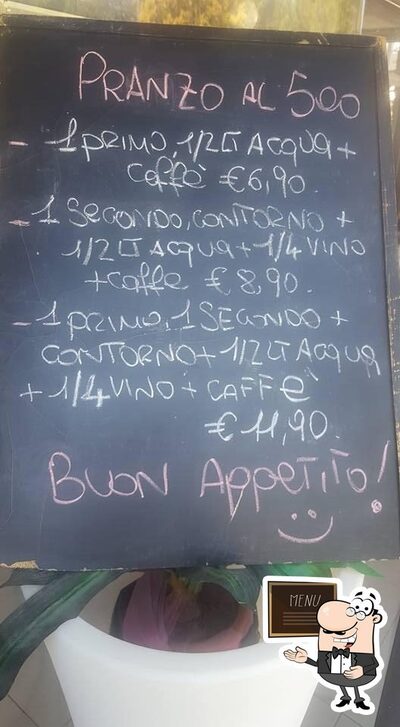 PRANZO AL 500
- 1 PRIMO, 1/2 LT ACQUA +
caffè € 6,90.
- 1 SECONDO, CONTORNO +
1/2 LT ACQUA + 1/4 VINO
+ caffe € 8,90.
- 1 PRIMO, 1 SECONDO +
CONTORNO + 1/2 LT ACQUA
+ 1/4 VINO + CAFFè
€ 11,90.
BUON APPETITO!
MENU